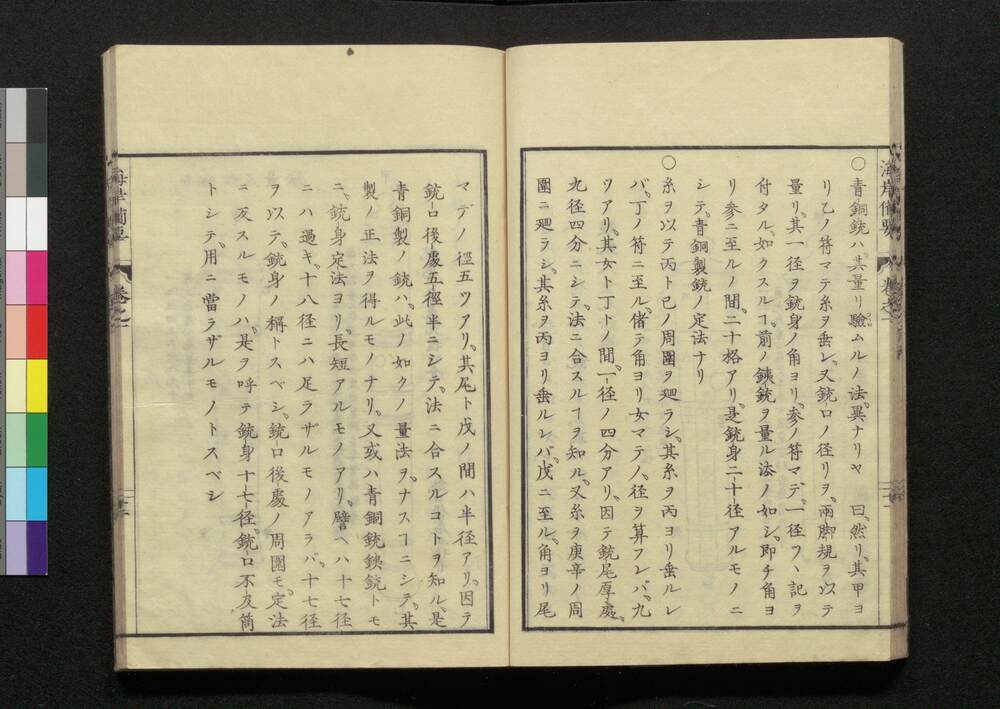 〇青銅銃ハ其量リ驗ムルノ法異ナリヤ 曰然リ其甲ヨ
リ乙ノ符マテ糸ヲ垂レ又銃口ノ径リヲ兩脚規ヲ以テ
量リ其一径ヲ銃身ノ角ヨリ参ノ符マデ一径ツヽ記ヲ
付タル如クスルヿ前ノ銕銃ヲ量ル法ノ如シ即チ角ヨ
リ参ニ至ルノ間二十格アリ是銃身二十径アルモノニ
シテ青銅製銃ノ定法ナリ
〇糸ヲ以テ丙ト己ノ周圍ヲ廻ラシ其糸ヲ丙ヨリ垂ルレ
バ丁ノ符ニ至ル偖テ角ヨリ女マテノ径ヲ算フレバ九
ツアリ其女ト丁トノ間一径ノ四分アリ因テ銃尾厚處
九径四分ニシテ法ニ合スルヿヲ知ル又糸ヲ庚辛ノ周
圍ニ廻ラシ其糸ヲ丙ヨリ垂ルレバ戊ニ至ル角ヨリ尾
マデノ徑五ツアリ其尾ト戊ノ間ハ半径アリ因テ
銃口後處五徑半ニシテ法ニ合スルコトヲ知ル是
青銅製ノ銃ハ此ノ如クノ量法ヲナスヿニシテ其
製ノ正法ヲ得ルモノナリ又或ハ青銅銃銕銃トモ
ニ銃身定法ヨリ長短アルモノアリ譬ヘハ十七径
ニハ過キ十八径ニハ足ラザルモノアラバ十七径
ヲ以テ銃身ノ稱トスベシ銃口後處ノ周圍モ定法
ニ反スルモノハ是ヲ呼テ銃身十七径銃口不及筒
トシテ用ニ當ラザルモノトスベシ
海岸備要
巻之一